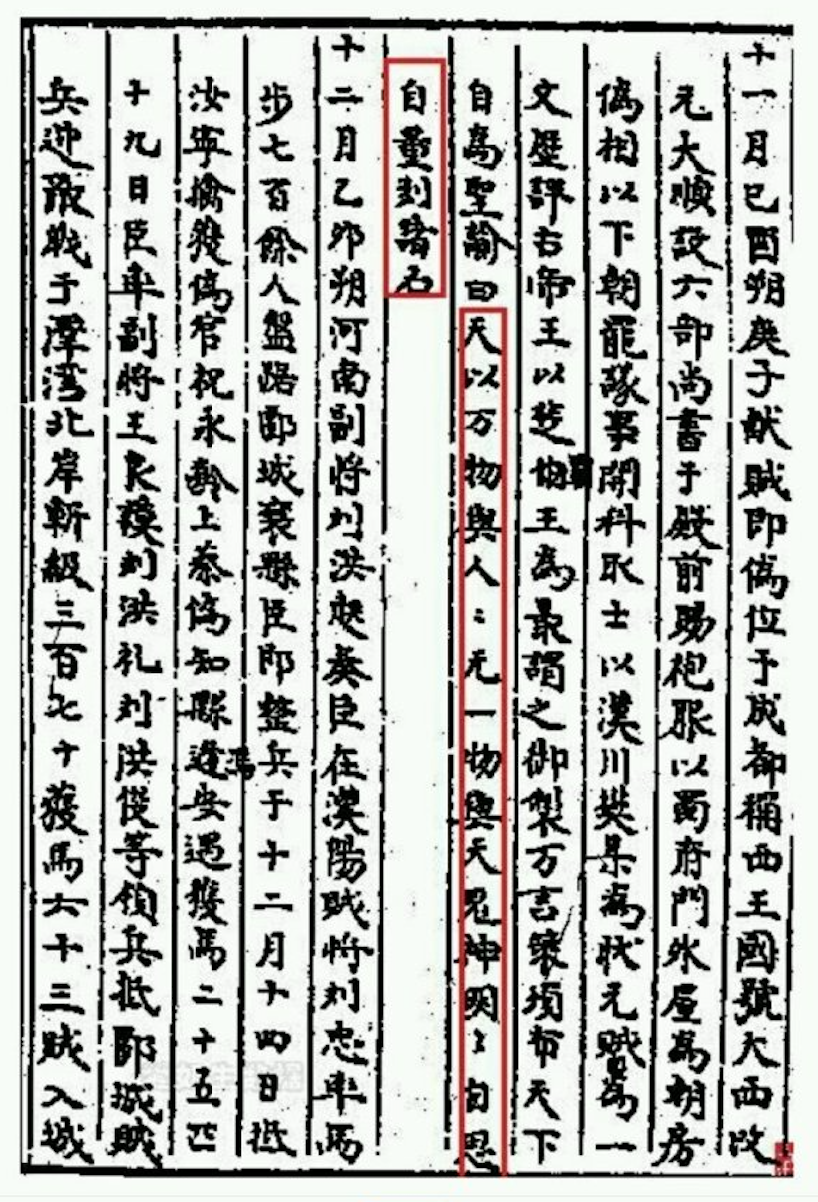 十一月己酉朔庚子献賊即偽位于成都稱西王國號大西改
元大順設六部尚書于殿前賜袍服以蜀府門外屋為朝房
偽相以下朝罷議事開科取士以漢川樊某為狀元賊為一
文歷評古帝王以楚伯王為最謂之御製万言策頒布天下
自為聖諭曰天以万物與人〻无一物與天鬼神明〻自思
自量刻諸石
十二月乙卯朔河南副將刘洪起奏臣在漢陽賊將刘忠率馬
步七百餘人盤踞郾城襄縣臣即整兵于十二月十四日抵
汝寧擒獲偽官祝永齡上蔡偽知縣馬進安遇獲馬二十五匹
十九日臣率副將王良模刘洪礼刘洪俊等領兵抵郾城賊
兵迎敵戰于潭湾北岸斬級三百七十獲馬六十三賊入城